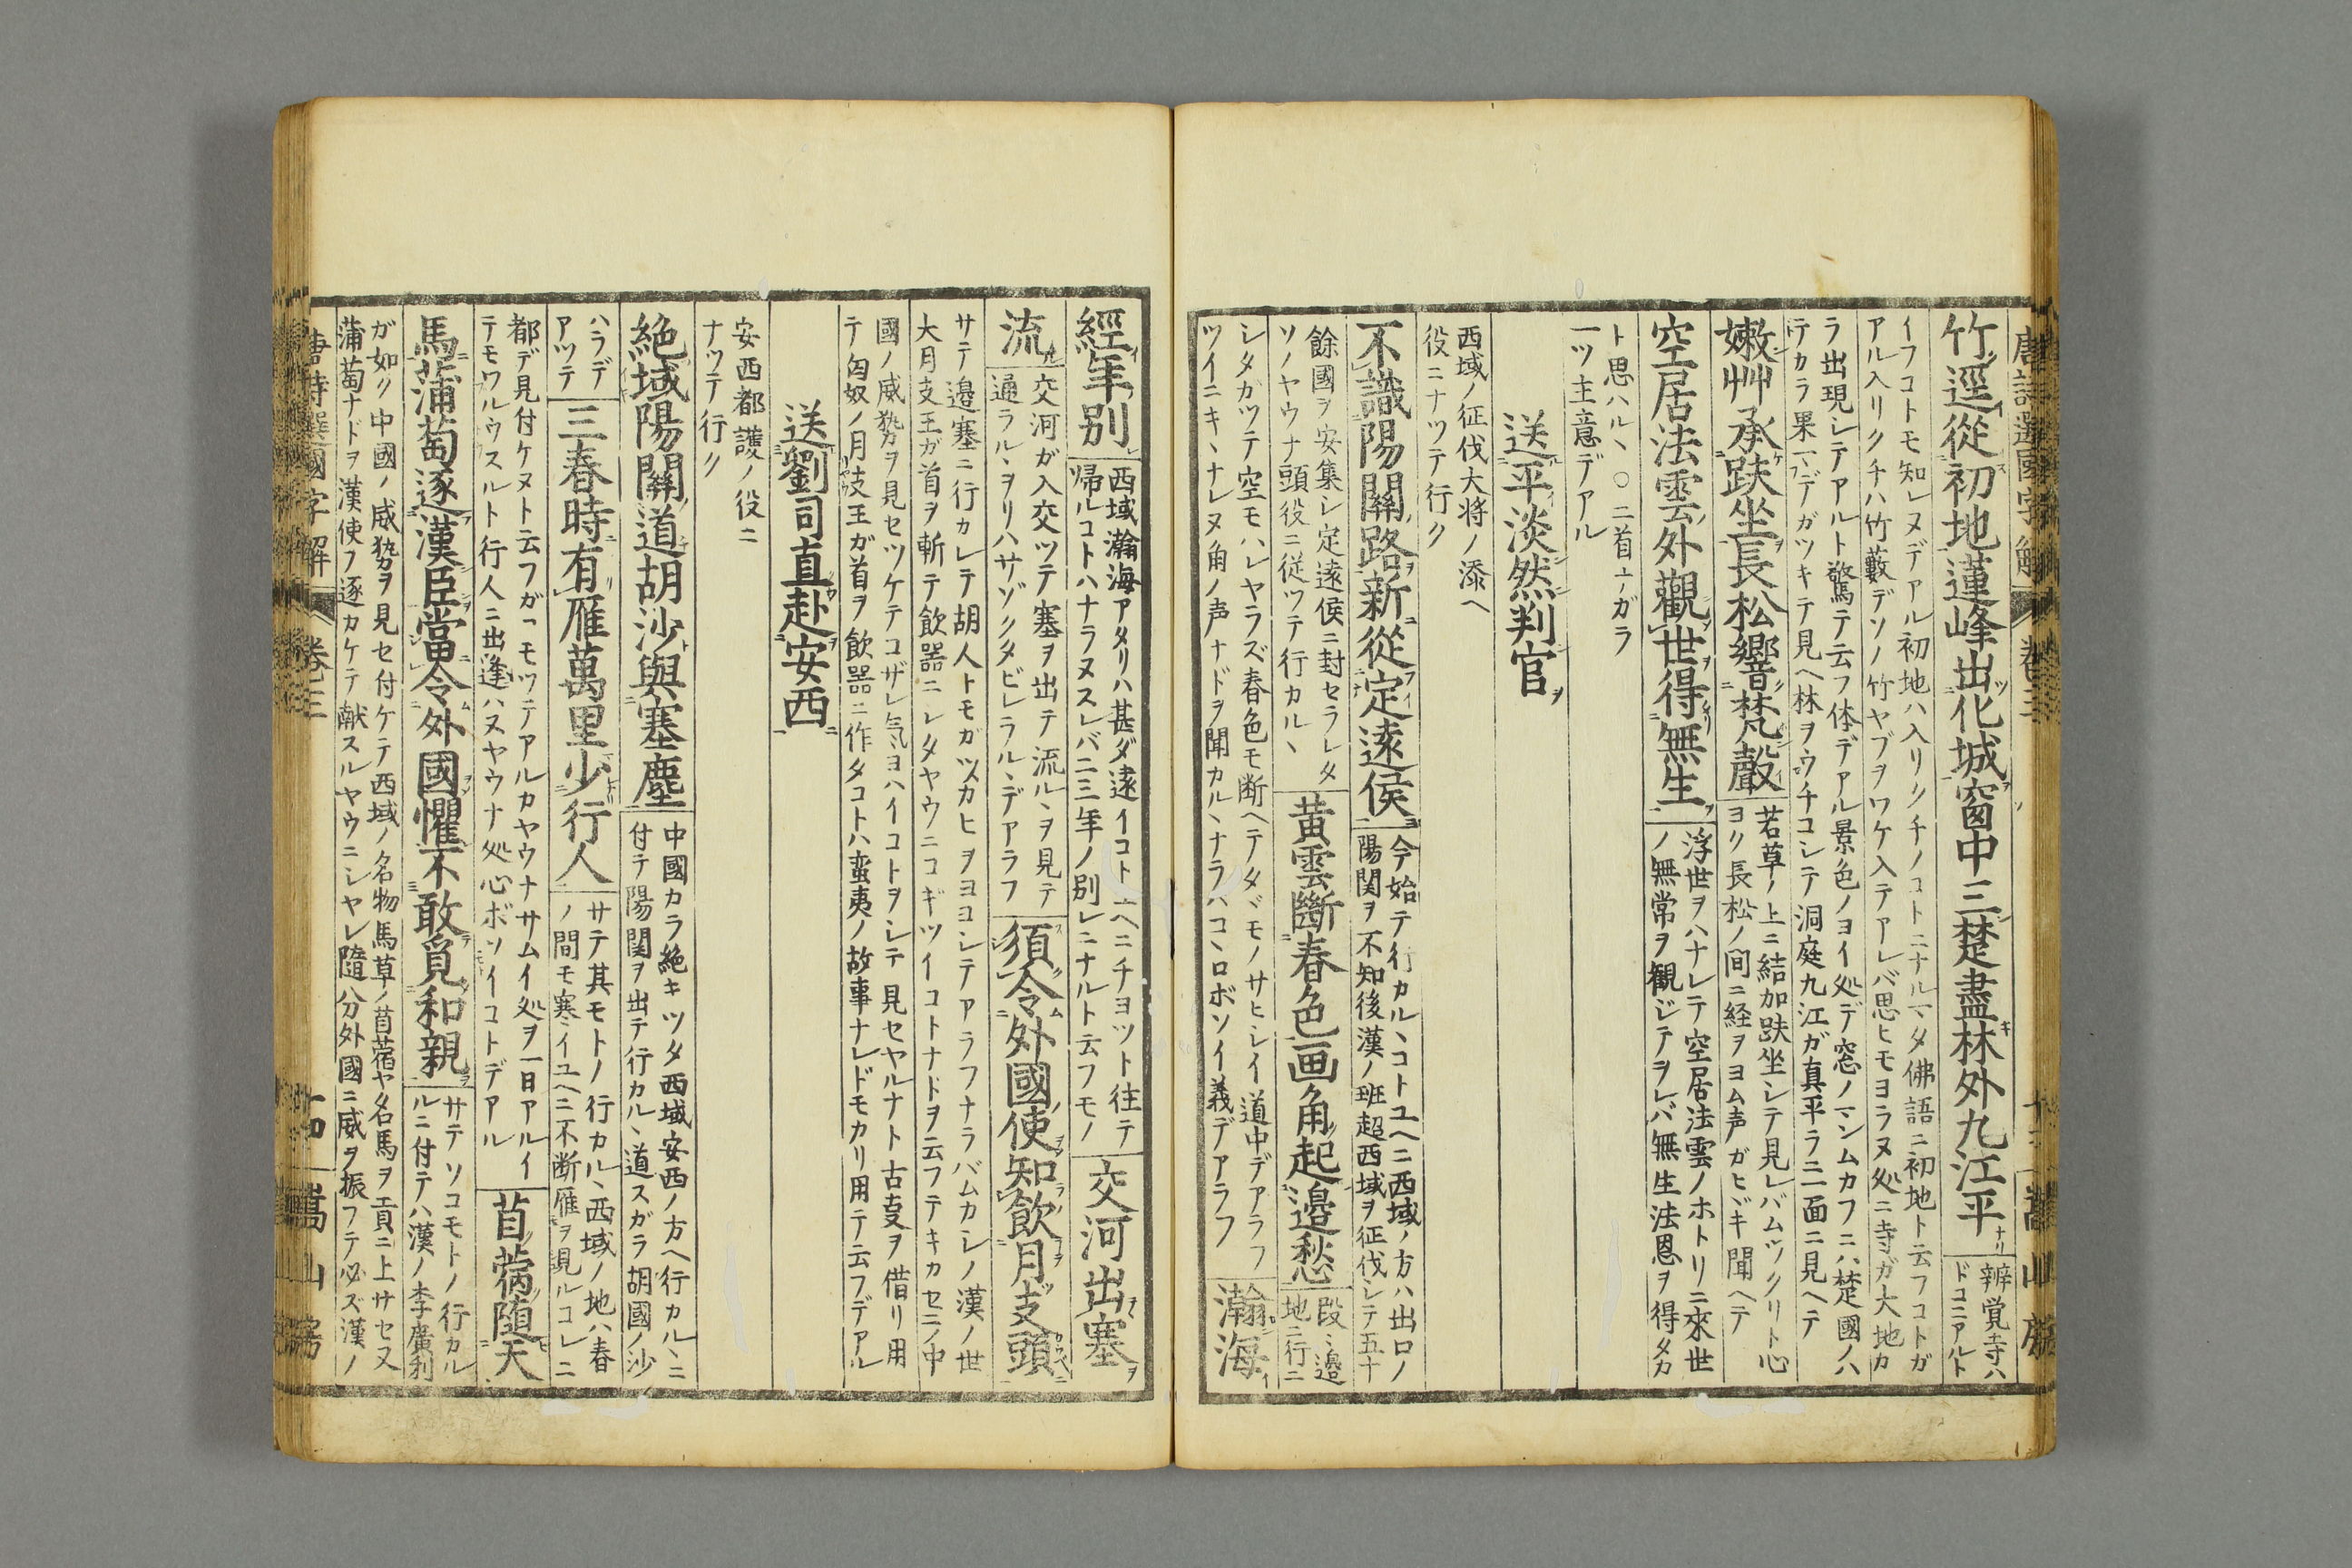 唐詩選國字解 卷三 十三 嵩山房
竹逕從初地蓮峰出化城窗中三楚盡林外九江平 辨覚寺ハドコニアルト
イフコトモ知レヌデアル初地ハ入リクチノコトニナルマタ佛語ニ初地ト云フコトガ
アル入リクチハ竹藪デソノ竹ヤブヲワケ入テアレバ思ヒモヨラヌ処ニ寺ガ大地カ
ラ出現シテアルト驚テ云フ体デアル景色ノヨイ処デ窓ノマンムカフニハ楚國ノハ
テカラ果マデガツキテ見ヘ林ヲウチコシテ洞庭九江ガ真平ラニ一面ニ見ヘテ
嫩艸承趺坐長松響梵聲 若草ノ上ニ結加趺坐シテ見レバムツクリト心
ヨク長松ノ间ニ経ヲヨム声ガヒヾキ聞ヘテ
空居法雲外觀世得無生 浮世ヲハナレテ空居法雲ノホトリニ來世
ノ無常ヲ観ジテヲレバ無生法恩ヲ得タカ
ト思ハルヽ○二首ナガラ
一ツ主意デアル
送平淡然判官
西域ノ征伐大将ノ添ヘ
役ニナツテ行ク
不識陽關路新從定遠侯 今始テ行カルヽコトユヘニ西域ノ方ハ出口ノ
陽関ヲ不知後漢ノ班超西域ヲ征伐シテ五十
餘國ヲ安集シ定遠侯ニ封セラレタ
ソノヤウナ頭役ニ従ツテ行カルヽ
黄雲斷春色画角起邉愁 段〻邉
地ニ行ニ
シタガツテ空モハレヤラズ春色モ断ヘテタヾモノサヒシイ道中デアラフ
ツイニキヽナレヌ角ノ声ナドヲ聞カルヽナラハコヽロボソイ義デアラフ
瀚海
經年別 西域瀚海アタリハ甚ダ遠イコトユヘニチヨツト往テ
帰ルコトハナラヌスレバ二三年ノ別レニナルト云フモノ
交河出塞
流 交河ガ入交ツテ塞ヲ出テ流ルヽヲ見テ
通ラルヽヲリハサゾクタビレラルヽデアラフ
須令外國使知飲月支頭
サテ邉塞ニ行カレテ胡人トモガツカヒヲヨコシテアラフナラバムカシノ漢ノ世
大月支王ガ首ヲ斬テ飲器ニシタヤウニコギツイコトナドヲ云フテキカセニノ中
國ノ威勢ヲ見セツケテコザレ気ヨハイコトヲシテ見セヤルナト古支ヲ借リ用
テ匈奴ノ月支王ガ首ヲ飲器ニ作タコトハ蛮夷ノ故事ナレドモカリ用テ云フデアル
送劉司直赴安西
安西都護ノ役ニ
ナツテ行ク
絶域陽關道胡沙與塞塵 中國カラ絶キツタ西域安西ノ方ヘ行カルヽニ
付テ陽関ヲ出テ行カルヽ道スガラ胡國ノ沙
ハラデ
アツテ
三春時有雁萬里少行人 サテ其モトノ行カルヽ西域ノ地ハ春
ノ間モ寒イユヘニ不断雁ヲ見ルコレニ
都デ見付ケヌト云フガ一モツテアルカヤウナサムイ処ヲ一日アルイ
テモワルウスルト行人ニ出逢ハヌヤウナ処心ボソイコトデアル
苜蓿随天
馬蒲萄逐漢臣當令外國懼不敢覓和親 サテソコモトノ行カル
ルニ付テハ漢ノ李廣利
ガ如ク中國ノ威勢ヲ見セ付ケテ西域ノ名物馬草ノ苜蓿ヤ名馬ヲ貢ニ上サセ又
蒲萄ナドヲ漢使フ逐カケテ献スルヤウニシヤレ隨分外國ニ威ヲ振フテ必ズ漢ノ
唐詩選國字解 卷三 十四 嵩山房